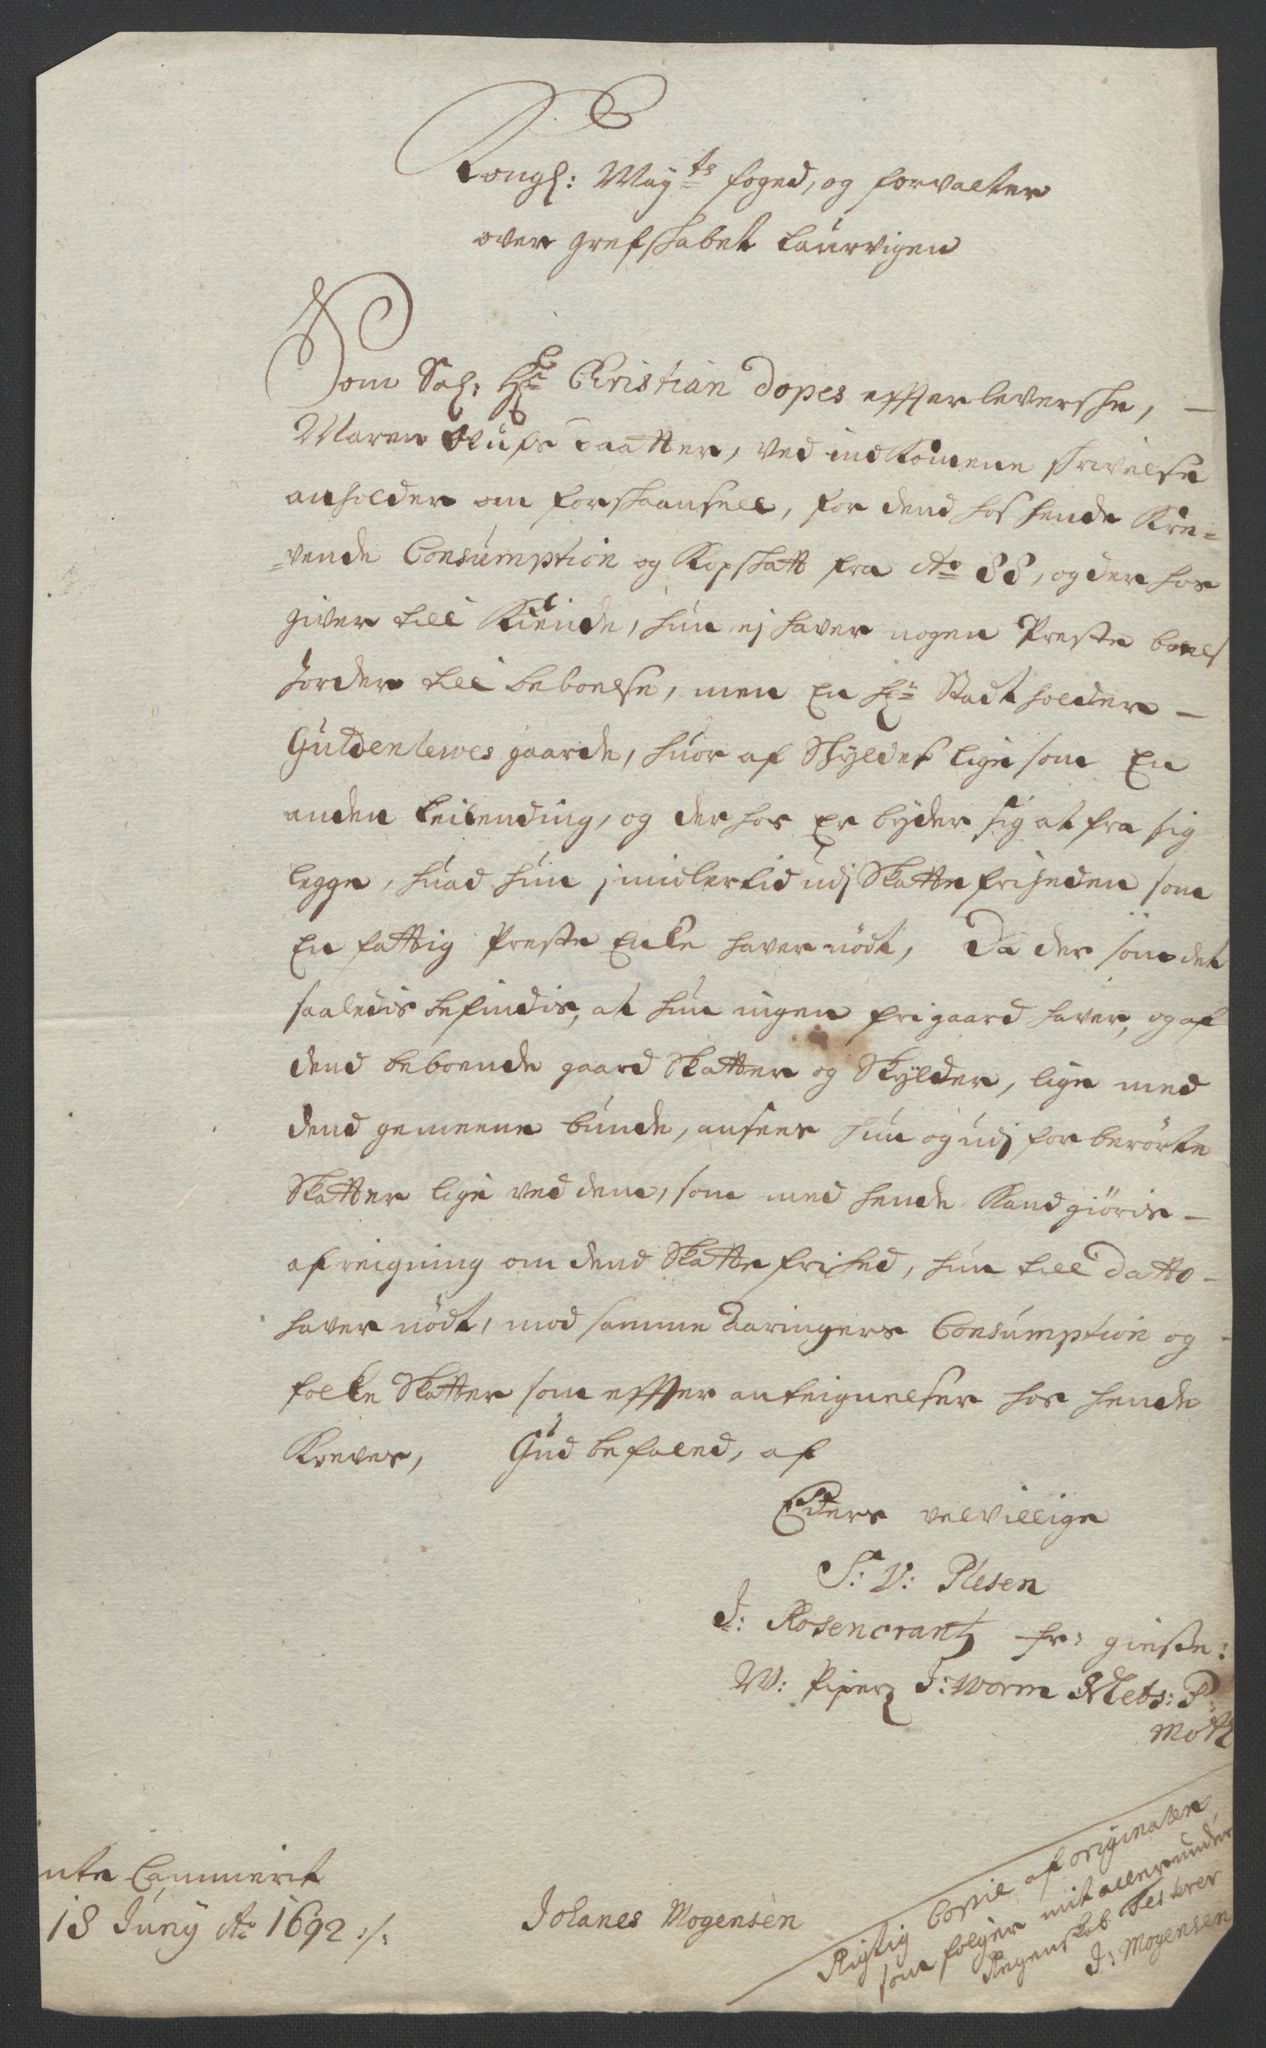 Kongl: May:ts foged, og forvalter
over grefskabet Laurvigen
Som Sal: Hr: Christian Dopes effterleverske, —
Maren Olufs daatter, ved indkomene skrivelse
anholder om forskaansell, for dend hos hende Kre-
-vende Consumption og Kopskatt fra Ao 88, og der hos
giver till Kiende, hun ej haver nogen Preste boels
Jorder till beboelse, men En Hr: Stadtholder —
Guldenlewes gaarde, huor af Skyldes lige som En
anden Leilending, og der hos Er byder sig at fra sig
legge, huad hun jmidlertid udj Skatte friheden som
En fattig Preste Enke haver nödt, Da der som det
saaledis befindis, at hun ingen frigaard haver, og af
dend beboende gaard Skatter og Skylder, lige med
dend gemeene bunde, ansees hun og udj for berörte
Skatter lige ved dem, som med hende Kand giöris —
afreigning om dend Skatte frihed, hun till Datto —
haver nödt, mod samme Aaringers Consumption og —
folke Skatter som effter anteignelser hos hende
Kreves, Gud befaled, af
Eders velvillige
S: V: Plesen
J: Rosencrantz Fr: giese:
W: Piper J: Worm Mets: P:
Motz
nte Cammerit
18 Juny Ao 1692 ./.
Johanes Mogensen
Rigtig Copie af originalen
som fölger mit allerunder
Regenskab Testerer
J: Mogensen